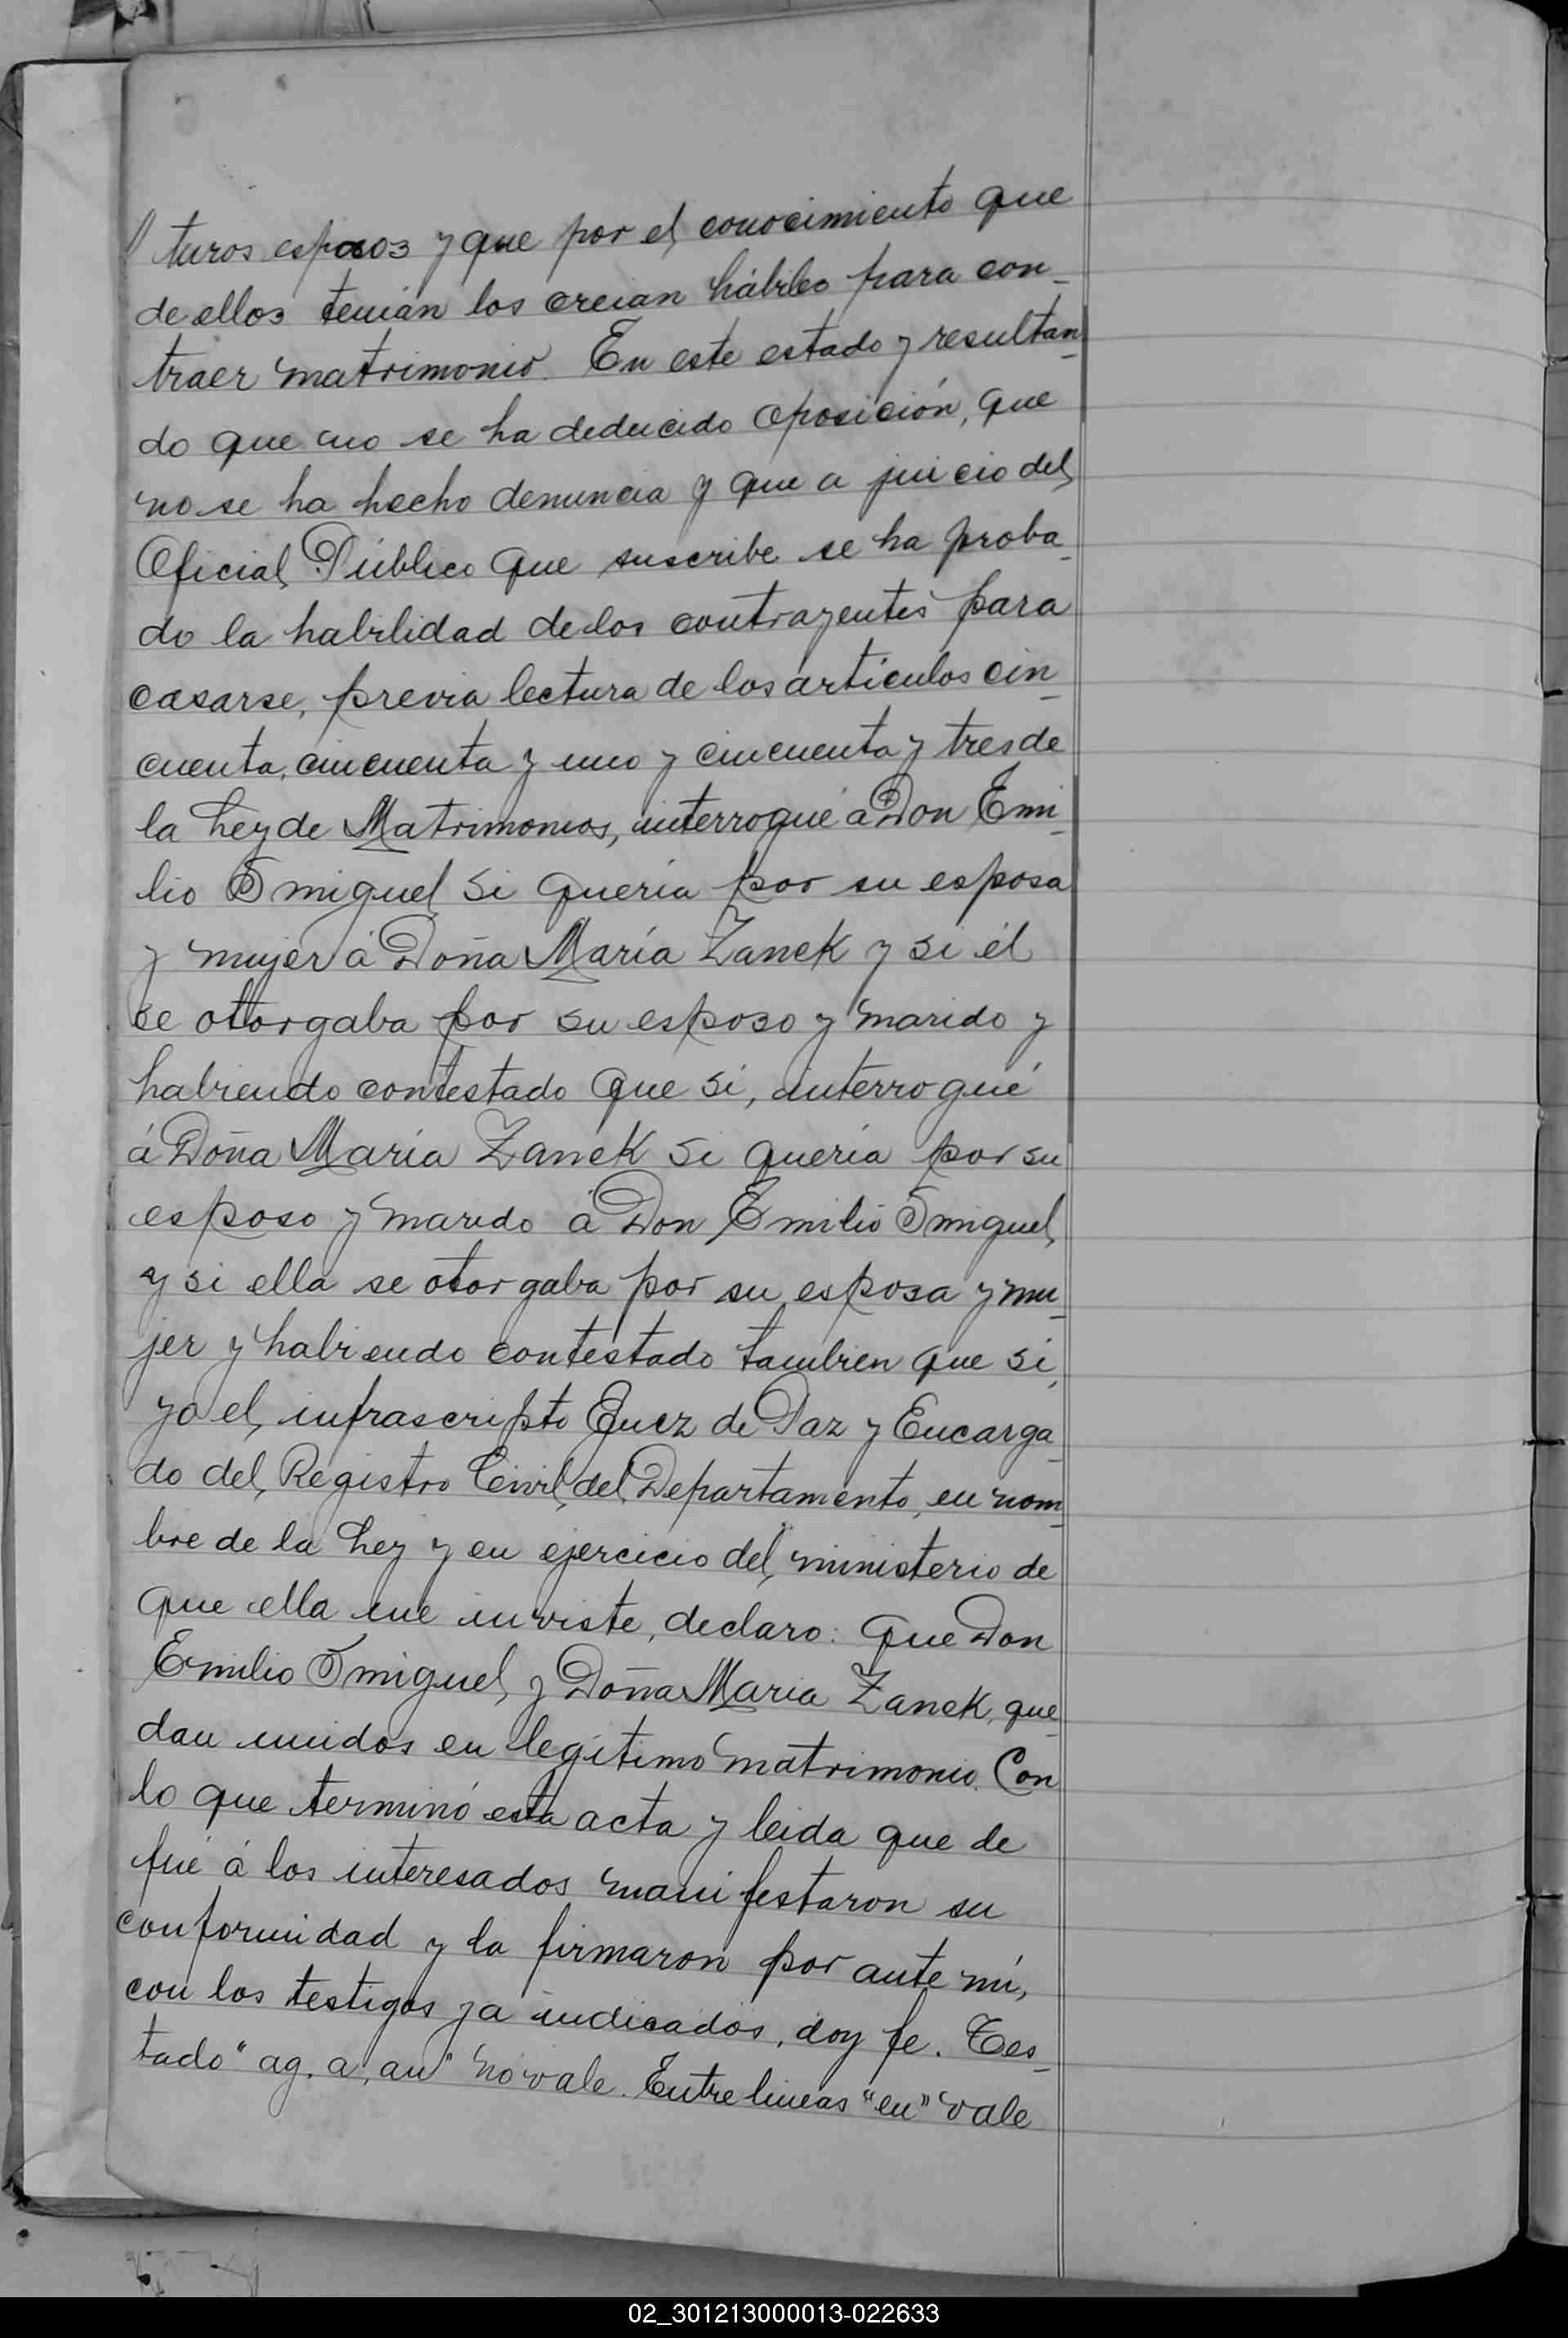 // turos esposos y que por el conocimiento que
de ellos tenian los creian hábiles para con_
traer matrimonio. En este estado y resultan_
do que no se ha deducido oposición, que
no se ha hecho denuncia y que a juicio del
Oficial Público que suscribe se ha proba_
do la habilidad de los contrayentes para
casarse, previa lectura de los artículos cin_
cuenta, cincuenta y uno y cincuenta y tres de
la Ley de Matrimonios, interrogué á Don Emi_
lio Smiguel si quería por su esposa
y mujer á Doña María Zanek y si él
se otorgaba por su esposo y marido y
habiendo contestado que si, interrogué
á Doña María Zanek si quería por su
esposo y marido á Don Emilio Smiguel
y si ella se otorgaba por su esposa y mu_
jer y habiendo contestado tambien que si,
yo el infrascripto Juez de Paz y Encarga_
do del Registro Civil del Departamento, en nom_
bre de la Ley y en ejercicio del ministerio de
que ella me inviste, declaro: que Don
Emilio Smiguel y Doña María Zanek, que_
dan unidos en legítimo matrimonio. Con
lo que terminó esta acta y leida que de
fué á los interesados manifestaron su
conformidad y la firmaron por ante mi,
con los testigos ya indicados, doy fe. Tes_
tado "ag. a, an" no vale. Entre lineas "en" vale
02_301213000013-022633